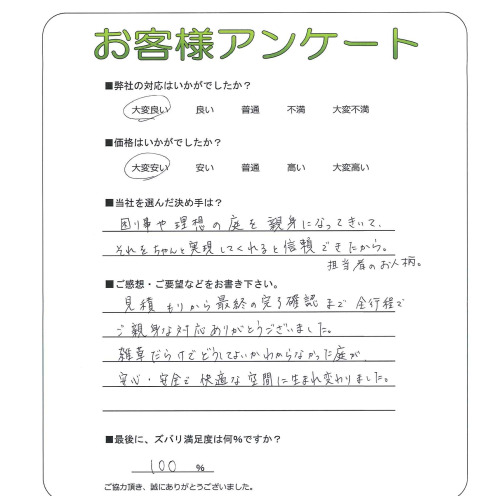 お客様アンケート
■弊社の対応はいかがでしたか？
大変良い 良い 普通 不満 大変不満
■価格はいかがでしたか？
大変安い 安い 普通 高い 大変高い
■当社を選んだ決め手は？
困り事や理想の庭を親身になってきいて、
それをちゃんと実現してくれると信頼できたから。
担当者のお人柄。
■ご感想・ご要望などをお書き下さい。
見積もりから最終の完了確認まで全行程で
ご親身な対応ありがとうございました。
雑草だらけでどうしてよいかわからなかった庭が、
安心・安全で快適な空間に生まれ変わりました。
■最後に、ズバリ満足度は何％ですか？
100 ％
ご協力頂き、誠にありがとうございました。